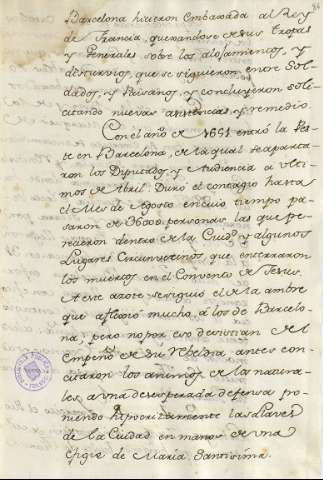 Barcelona hicieron Embaxada al Rey
de Francia, quexandose de sus tropas
y Generales sobre los alojamientos, y
disturvios, que se siguieron entre Sol-
dados, y Paisanos, y concluyeron soli-
citando nuevas asistencias, y remedio.
Con el año de 1651 entró la Pes-
te en Barcelona, de la qual se aparta-
ron los Diputados, y Audiencia a ulti-
mos de Abril. Duró el contagio hasta
el Mes de Agosto en cuio tiempo pa-
saron de 36000 personas las que pe-
recieron dentro de la Ciudad y algunos
Lugares Circunvecinos, que enterraron
los muchos en el Convento de Jesus.
A este azote se siguió el de la ambre
que afligió mucho, a los de Barcelo-
na; pero no por eso desistian de el
Empeño de su rebeldia, antes con-
citaron los animos de los natura-
les, a una desesperada defensa po-
niendo hipocritamente las llaves
de la Ciudad en manos de una
efigie de Maria Santisima.